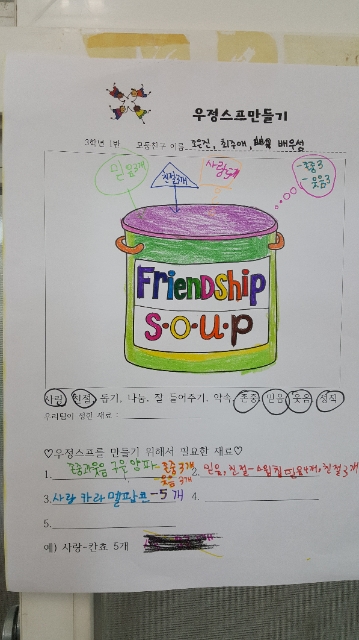 우정스프만들기
3학년 1반 모둠친구 이름 조은진, 최주애, 배우성
믿음 3개
친절3개
사랑5개
-존중3
-웃음3
Friendship
S·O·U·P
사랑, 친절, 돕기, 나눔, 잘 들어주기, 약속, 존중, 믿음, 웃음, 정직
우리팀이 정한 재료 :
♡우정스프를 만들기 위해서 필요한 재료♡
1. 존중과웃음 구운 양파-존중3개
웃음 3개
2. 믿음, 친절-스월칩 믿음4개, 친절3개
3. 사랑 카라멜팝콘-5개 4.
5.
예) 사랑-칸쵸 5개